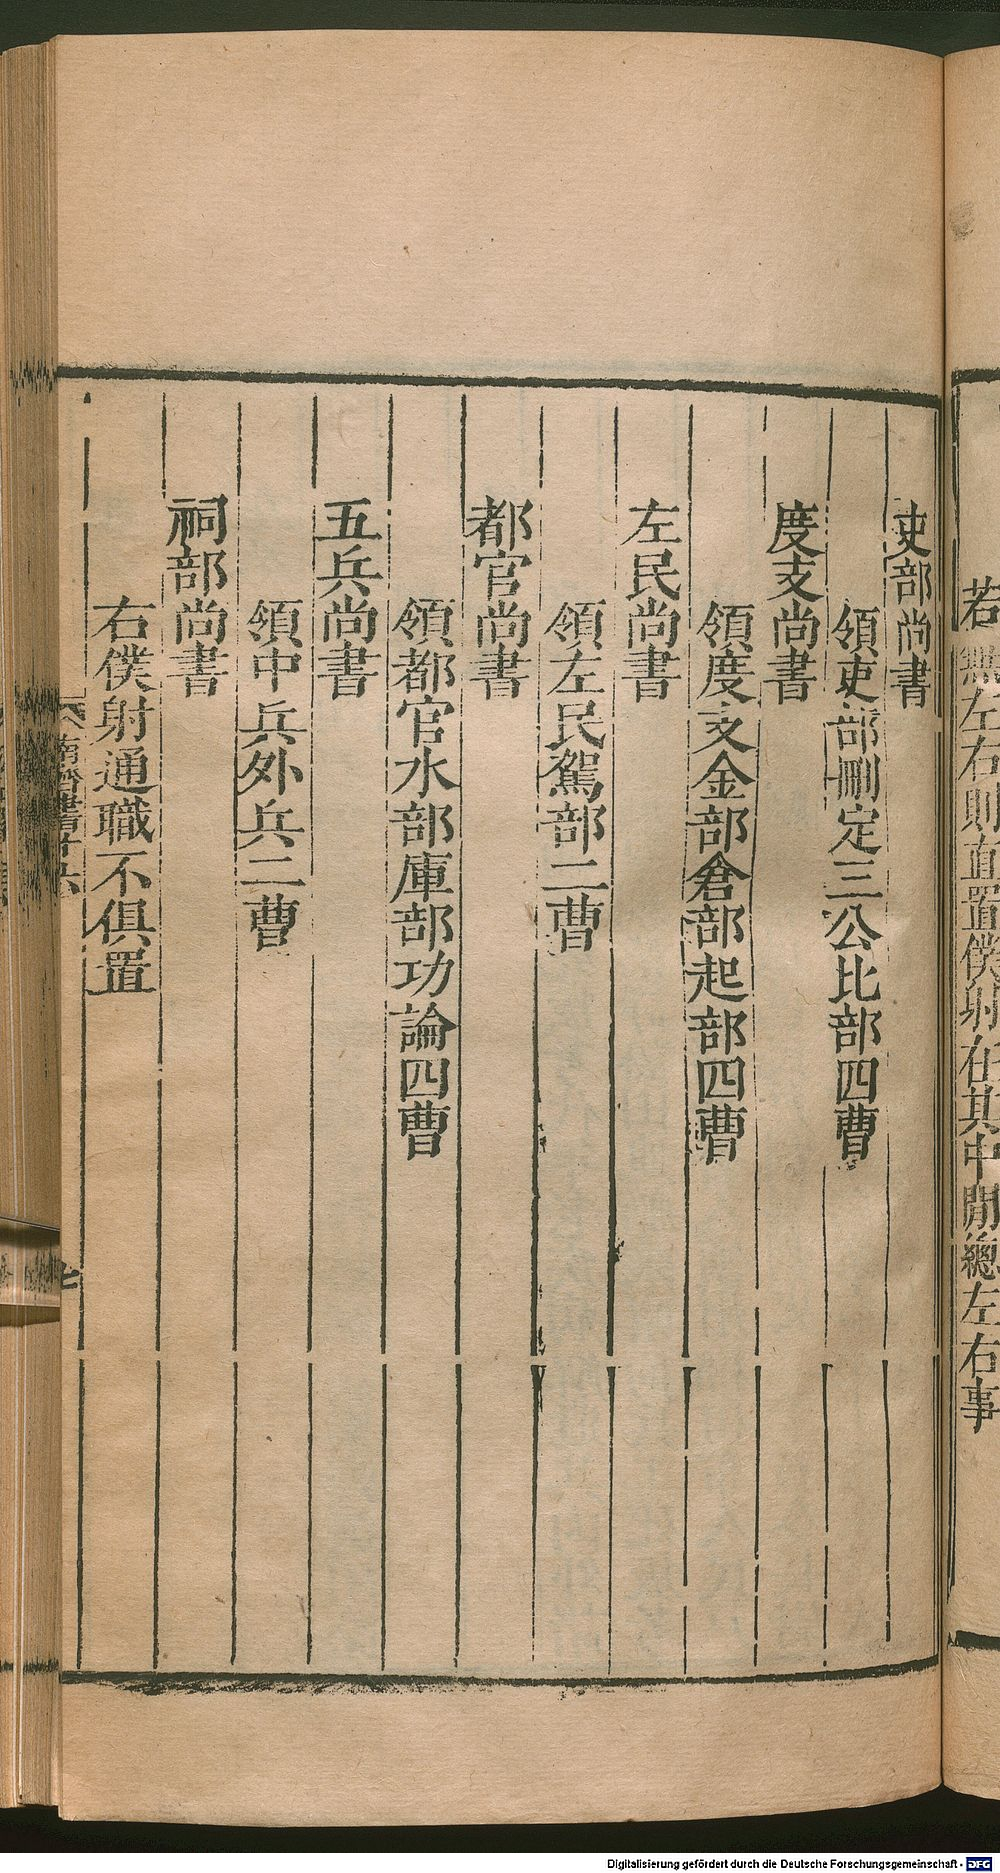 若無左右則直置僕射在其中間總左右事
吏部尚書
領吏部刪定三公比部四曹
度支尚書
領度支金部倉部起部四曹
左民尚書
領左民駕部二曹
都官尚書
領都官水部庫部功論四曹
五兵尚書
領中兵外兵二曹
祠部尚書
右僕射通職不俱置
南齊書十六
七
Digitalisierung gefördert durch die Deutsche Forschungsgemeinschaft - DFG